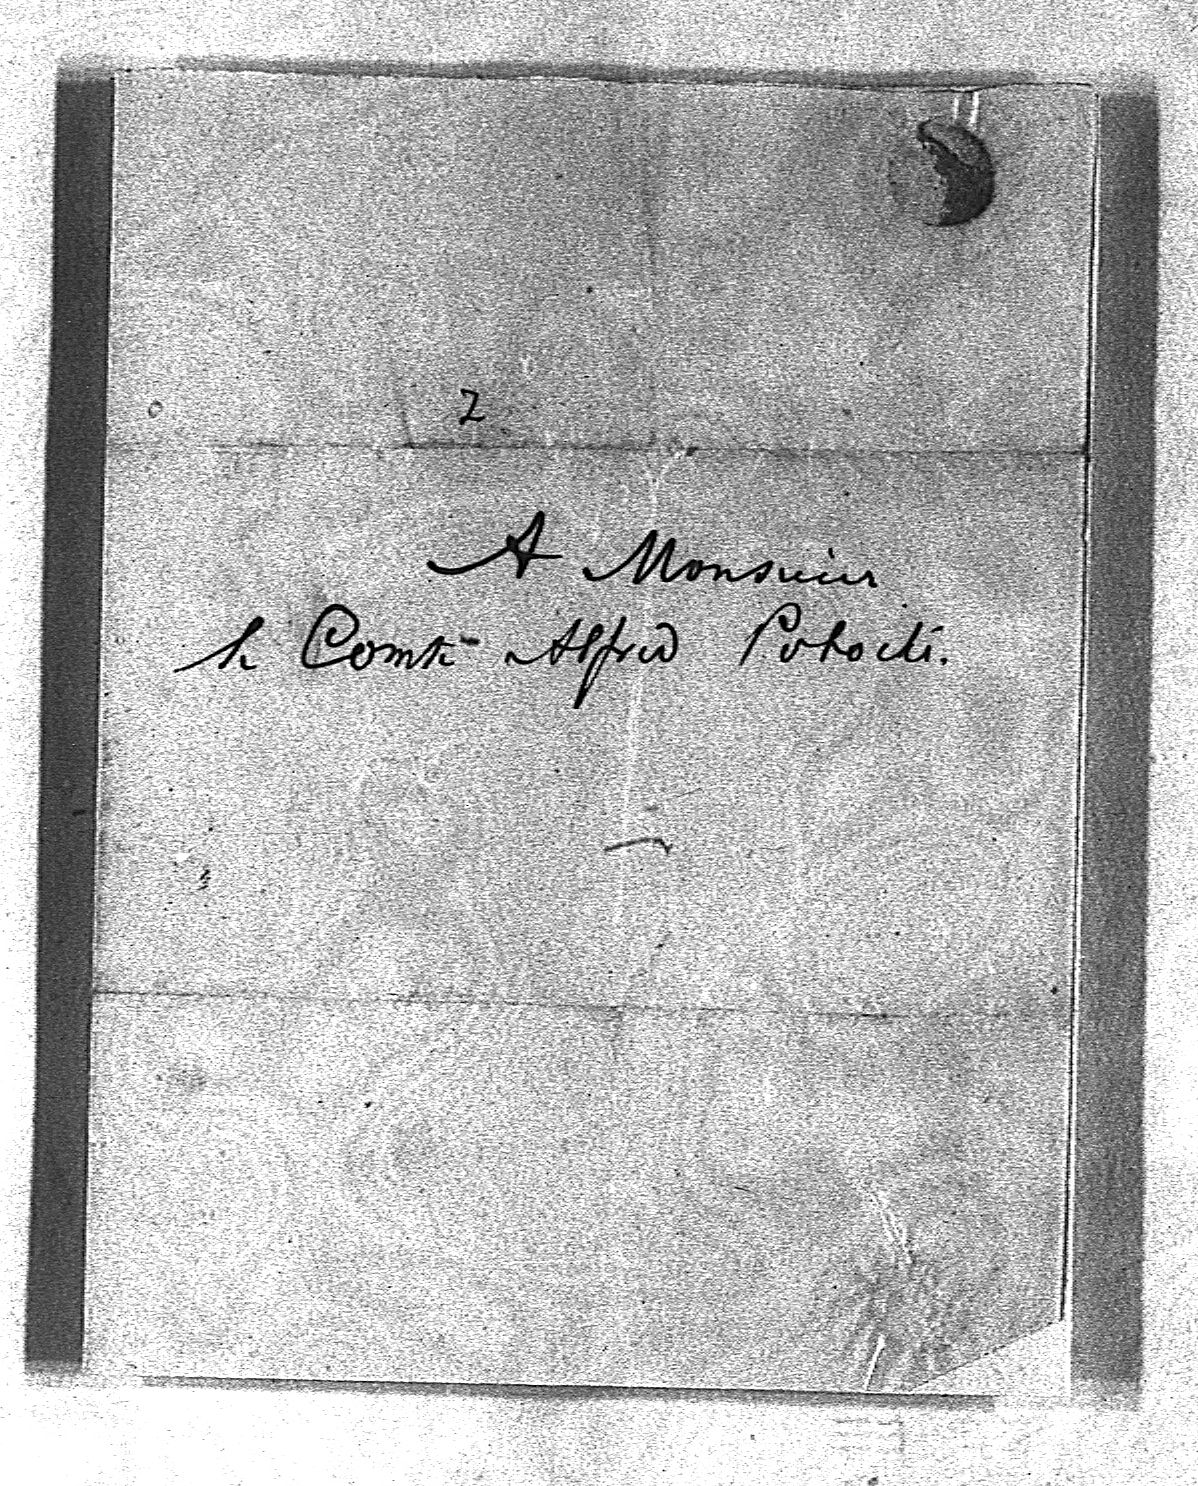 2
A Monsieur
le Comte Alfred Potocki.